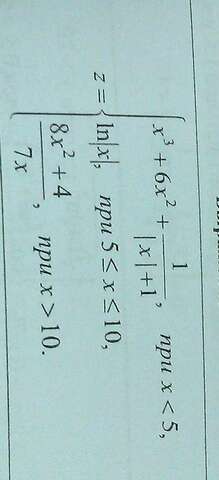 x³ + 6x² + 1/(|x|+1), при x < 5,
z = { ln|x|, при 5 ≤ x ≤ 10,
(8x² + 4)/(7x), при x > 10.